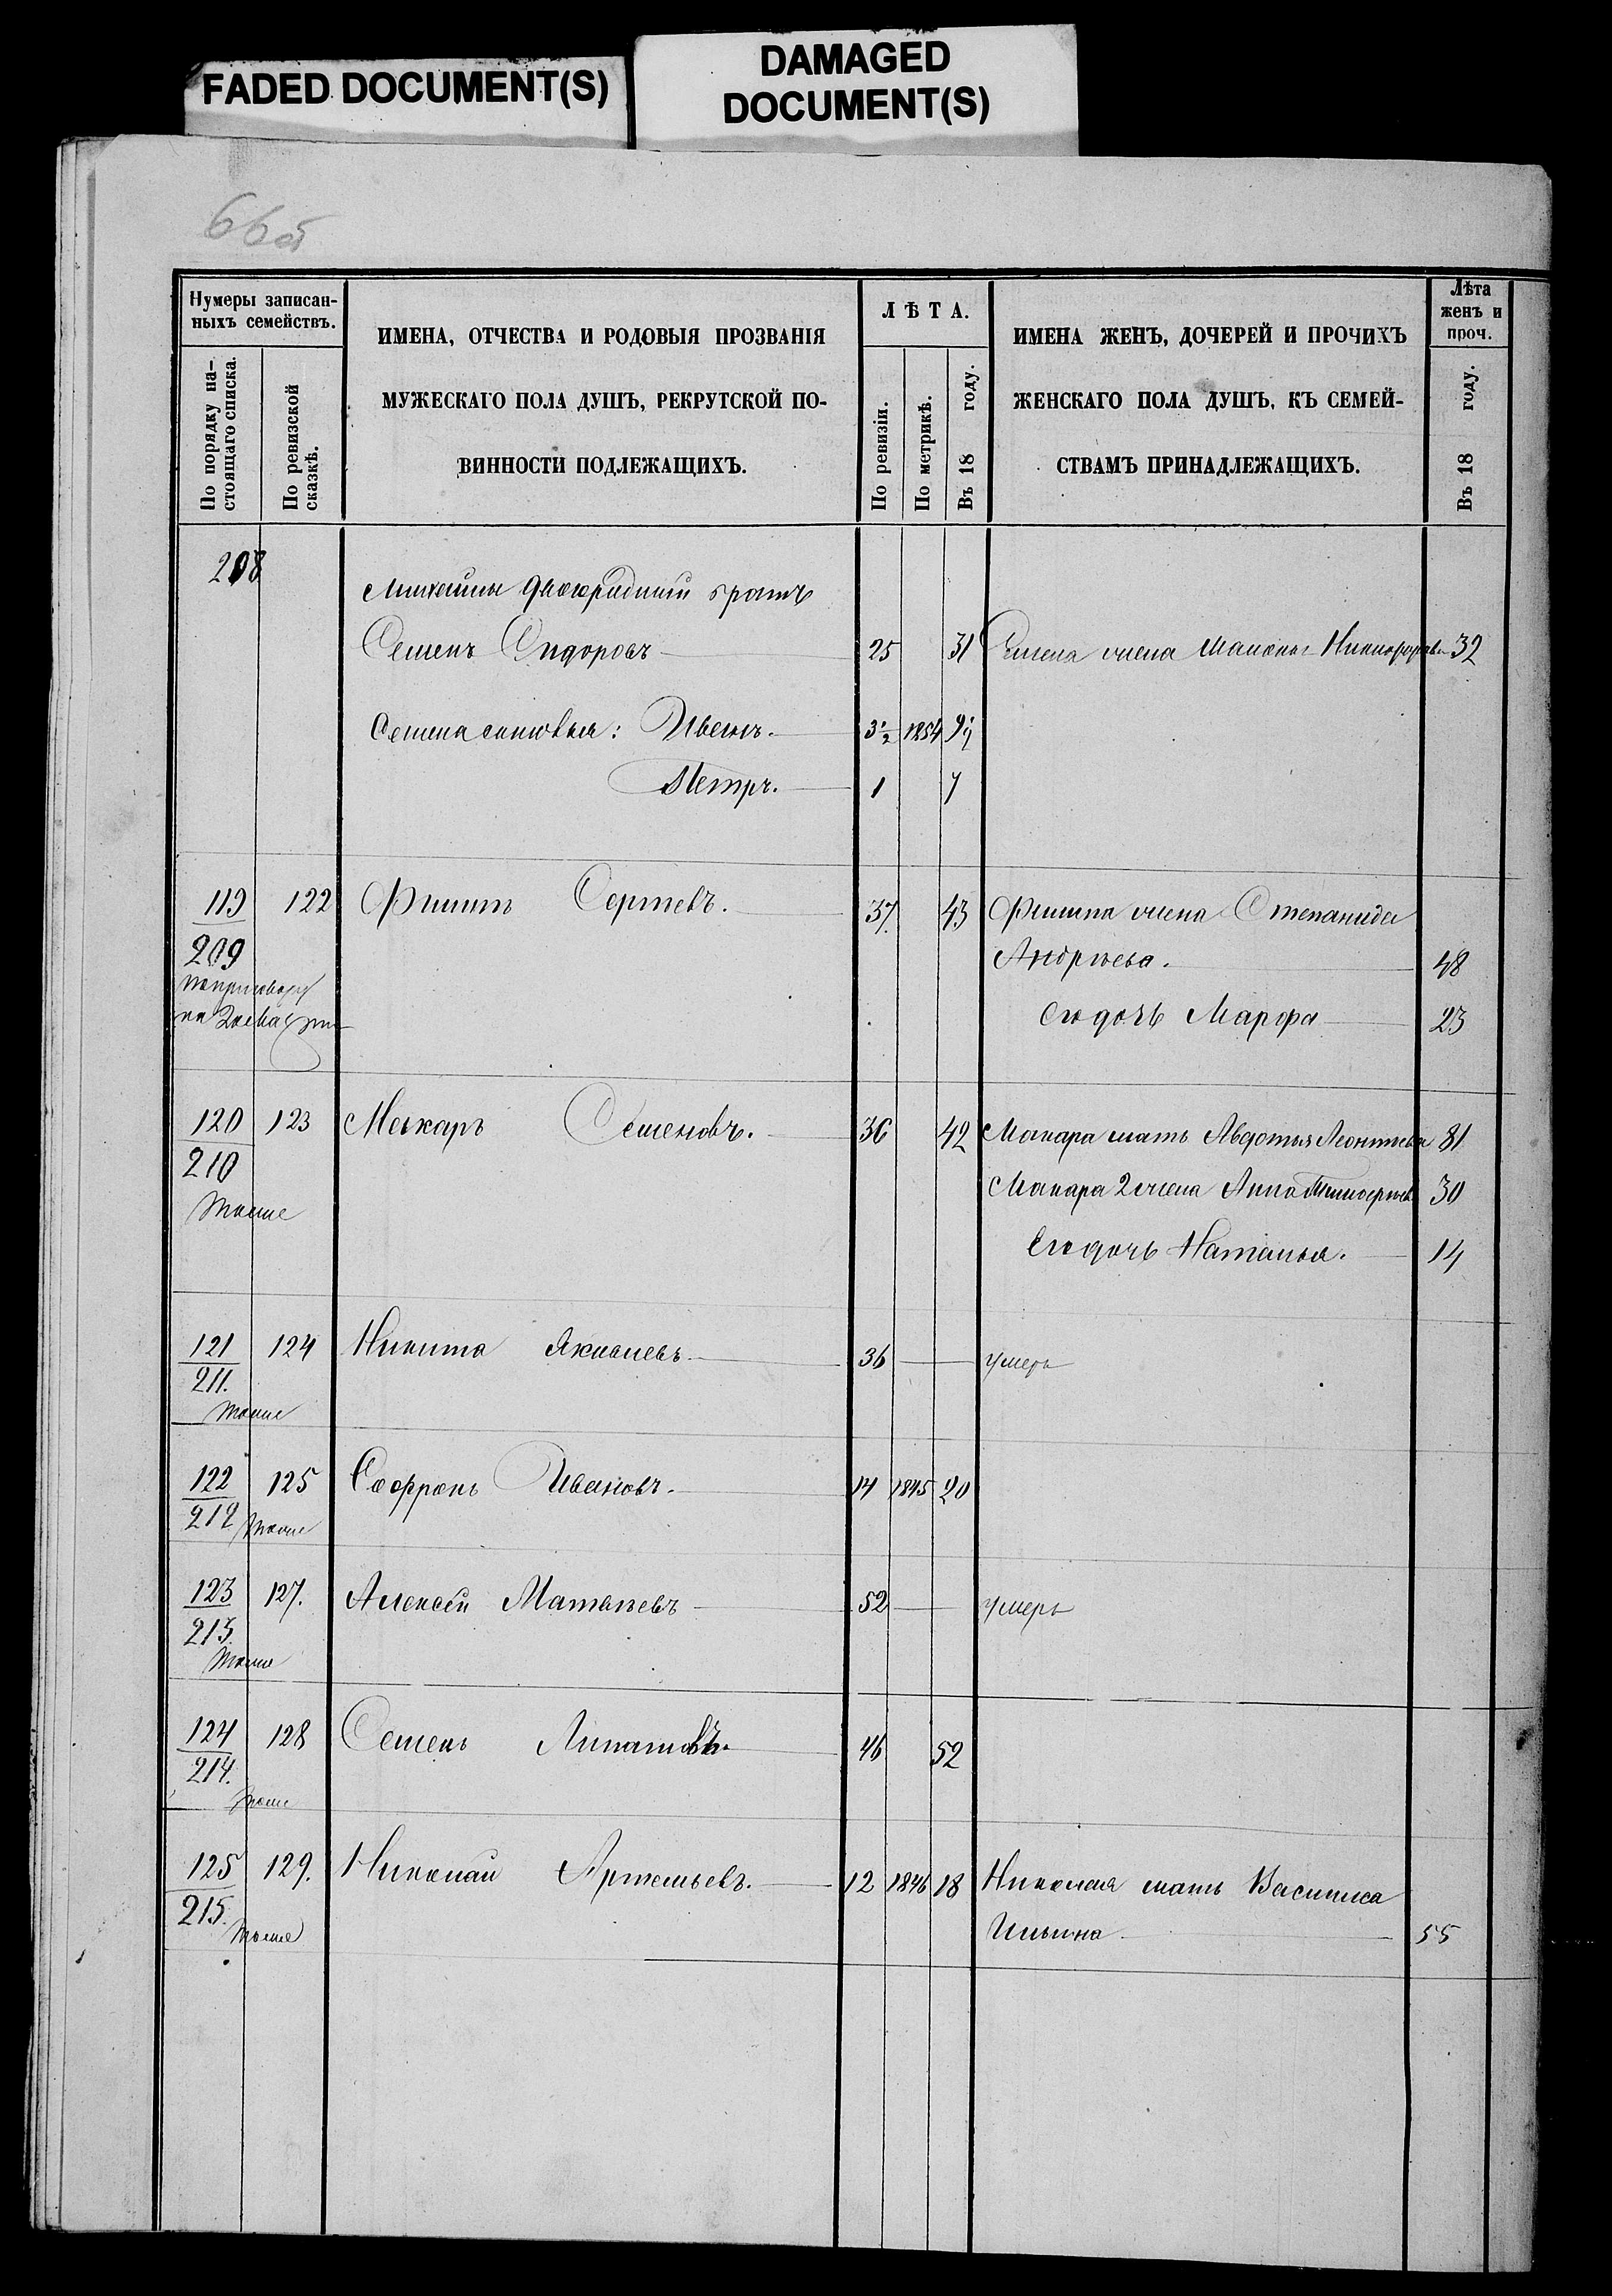 FADED DOCUMENT(S)
DAMAGED
DOCUMENT(S)
66 об
Нумеры записан-
ныхъ семействъ.
По порядку на-
стоящаго списка.
По ревизской
сказкѣ.
ИМЕНА, ОТЧЕСТВА И РОДОВЫЯ ПРОЗВАНІЯ
МУЖЕСКАГО ПОЛА ДУШЪ, РЕКРУТСКОЙ ПО-
ВИННОСТИ ПОДЛЕЖАЩИХЪ.
ЛѢТА.
По ревизіи.
По метрикѣ.
Въ 18 году.
ИМЕНА ЖЕНЪ, ДОЧЕРЕЙ И ПРОЧИХЪ
ЖЕНСКАГО ПОЛА ДУШЪ, КЪ СЕМЕЙ-
СТВАМЪ ПРИНАДЛЕЖАЩИХЪ.
Лѣта
женъ и
проч.
Въ 18 году.
208
двоюридный братъ
Семенъ Сидоровъ 25 31 Семена жена Никифорова 32
Семена сыновья: Иванъ. 3½ 1854 9½
Петръ. 1 7
119 122 Филипъ Сергѣевъ. 37. 43 Филипа жена Степанида
209 Андрѣева. 48
по приговору
на
Его дочь Марфа 23
120 123 Макаръ Семеновъ. 36 42 Макара мать Авдотья Леонтьева 81
210 Макара 2 жена Анна 30
тоже
Его дочь Наталья. 14
121 124 Никита Яковлевъ 36 умеръ
211.
тоже
122 125 Софронъ Ивановъ. 14 1845 20
212 тоже
123 127. Алексѣй Матвѣевъ 52 умеръ
213.
тоже
124 128 Семенъ Липатовъ. 46 52
214.
тоже
125 129. Николай Артемьевъ. 12 1846 18 Николая мать Василиса
215. тоже Ильина 55